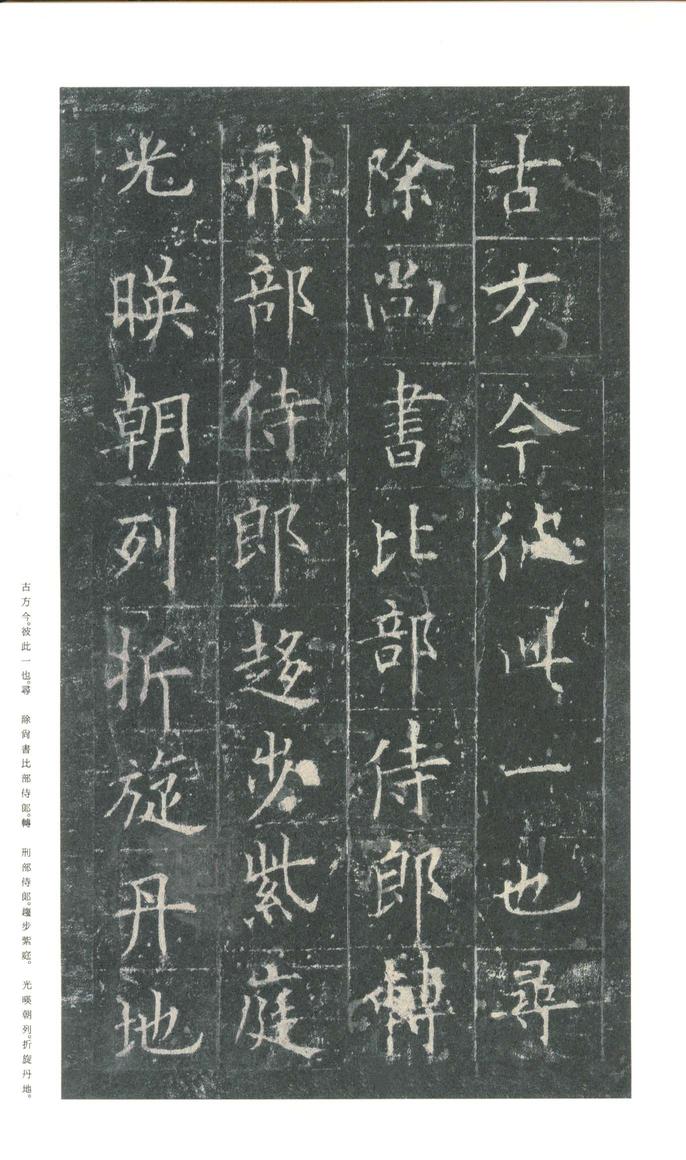 古方今彼此一也尋
除尚書比部侍郎轉
刑部侍郎趍步紫庭
光暎朝列折旋丹地
古方今。彼此一也。尋　除尙書比部侍郎。轉　刑部侍郎。趨步紫庭。　光暎朝列。折旋丹地。